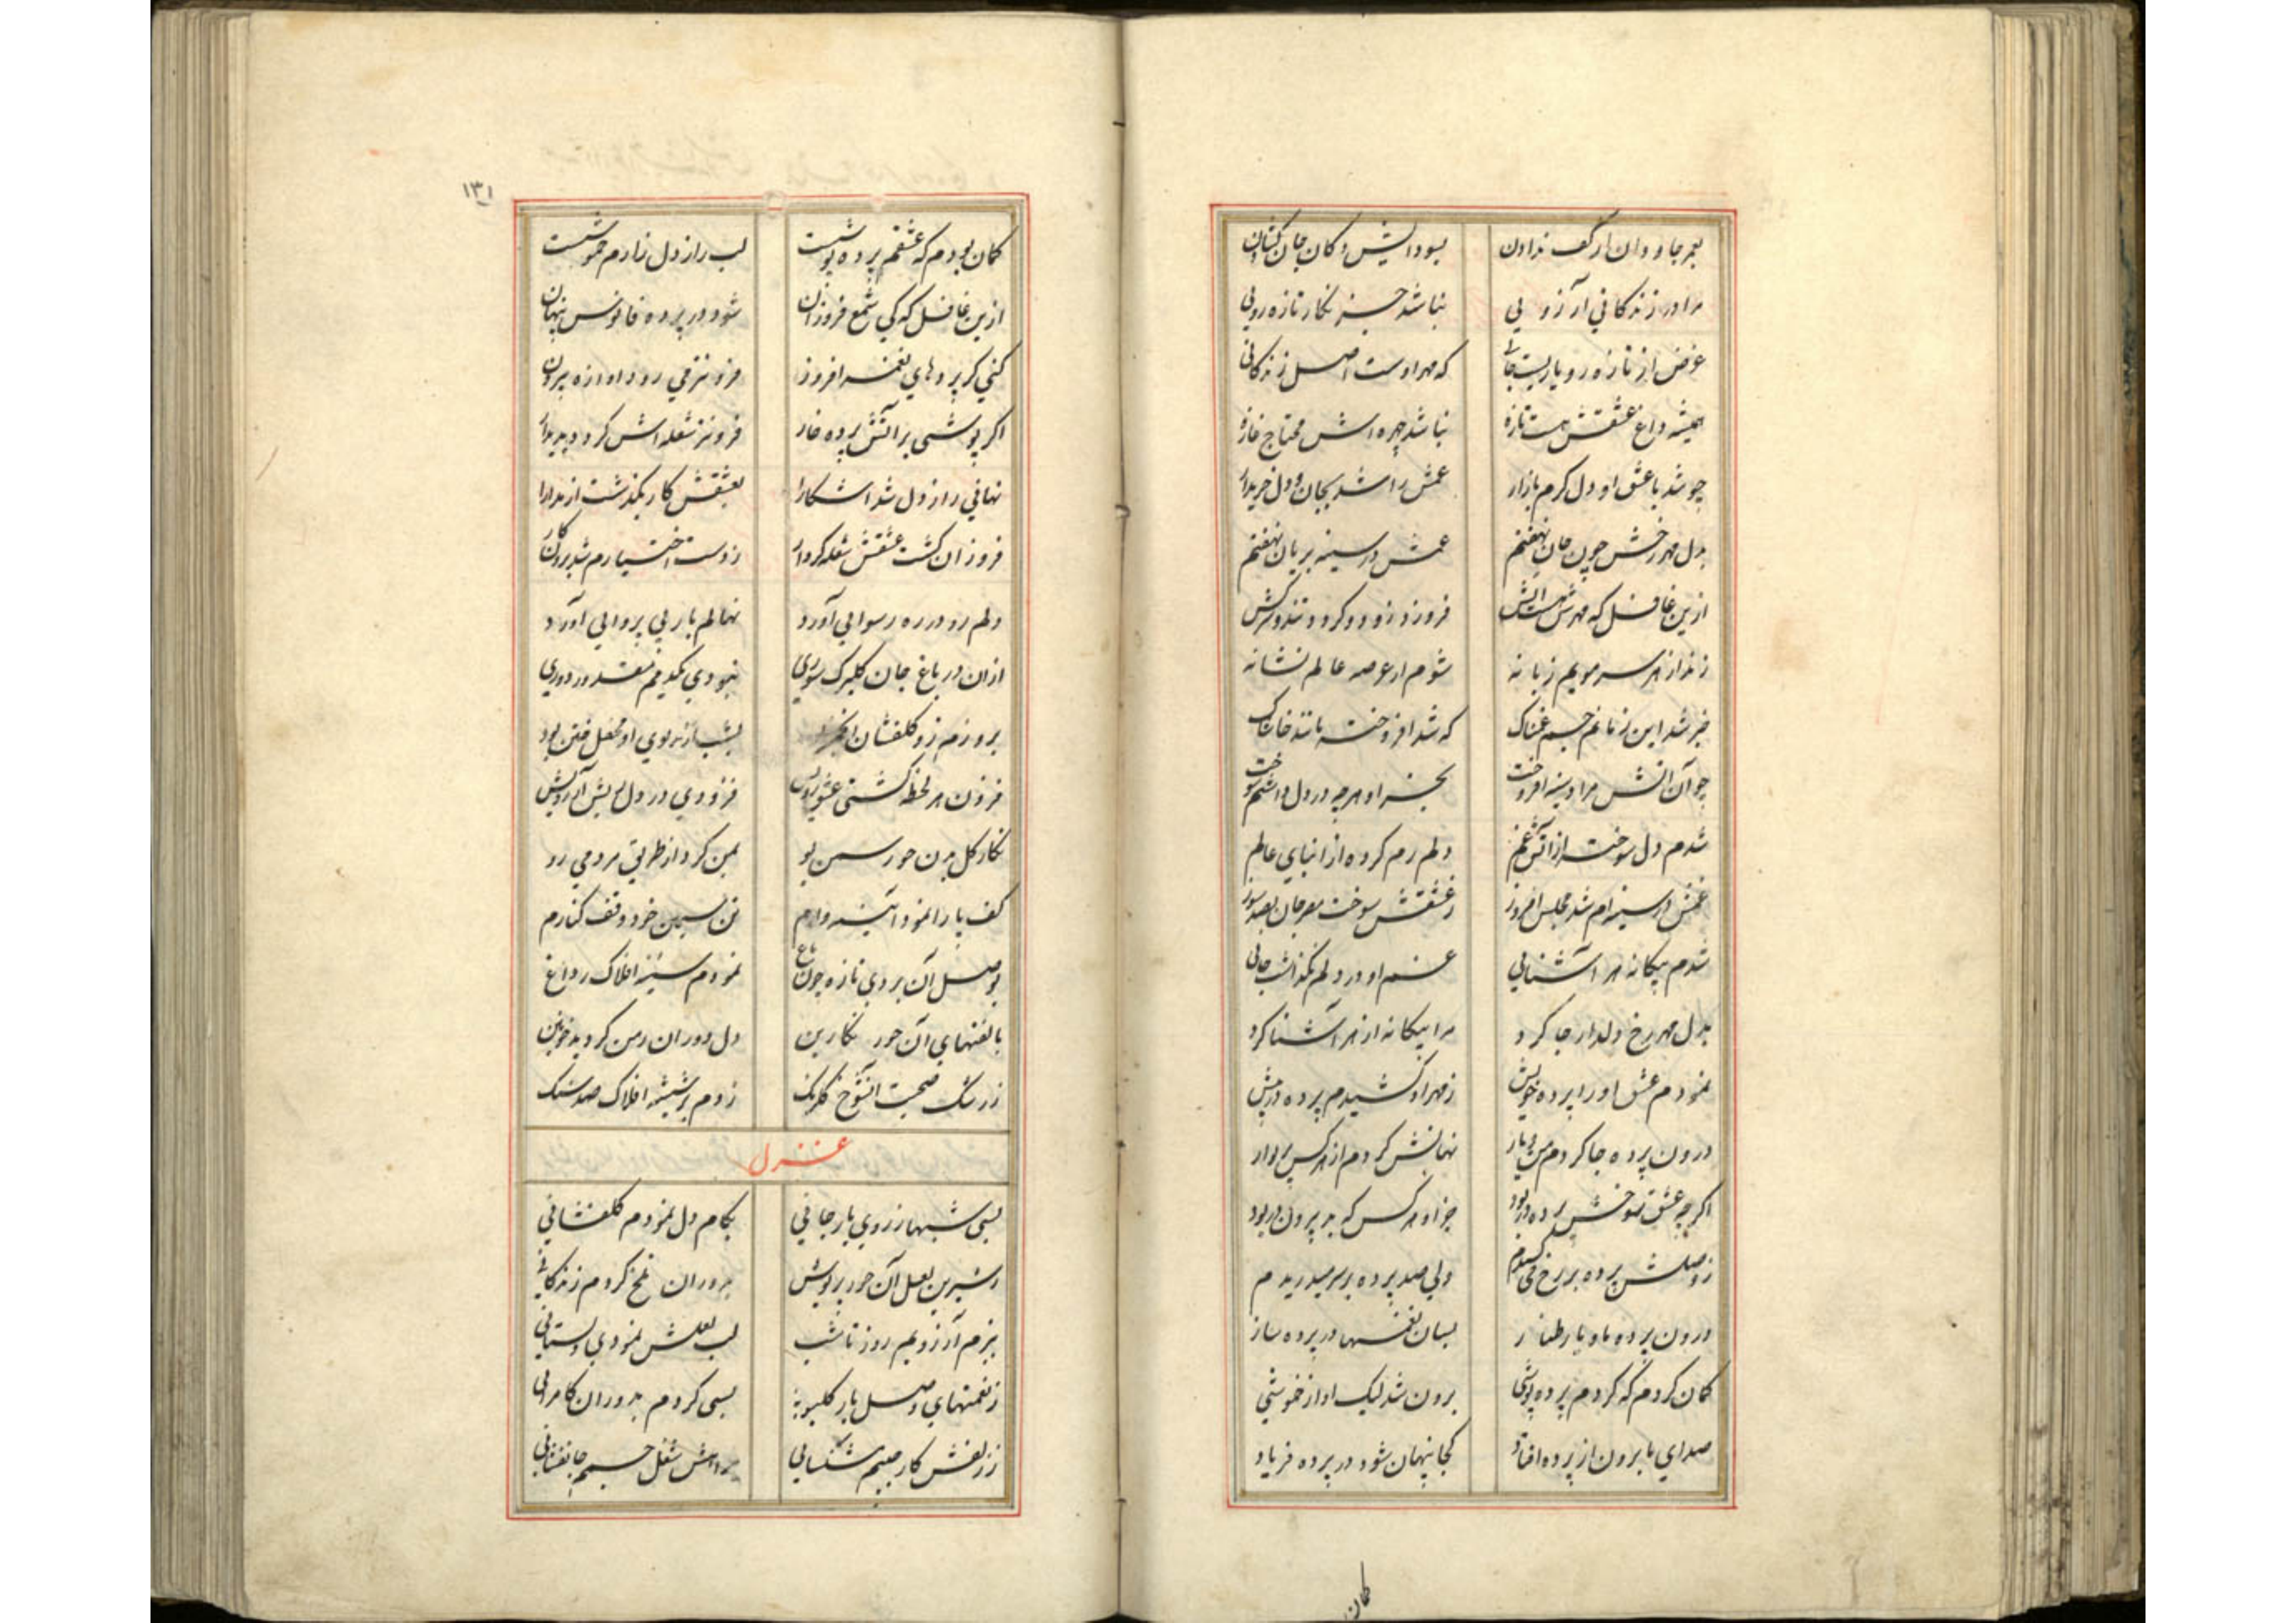 بعمر جاودان از کف ندادن بسودایش دکان جان کشادن
مرا در زندکانی آرزویی نباشد جز نکار تازه رویی
غرض از تازه رو یاریست جانی که مهر اوست اصل زندکانی
همیشه داغ عشقش هست تازه نباشد چهره اش محتاج غازه
چو شد با عشق او دل کرم بازار غمش را شد بجان و دل خریدار
بدل مهر رخش چون جان نهفتم غمش در سینه بریان نهفتم
ازین غافل که مهرش هست آتش فروزد زود و کردد تند و سرکش
زند از هر سر مویم زبانه شوم از عرصه عالم نشانه
خبر شد این زمانم جسم غمناک که شد افروخته مانند خاشاک
چو آن آتش مرا در سینه افروخت بجز او هرچه در دل داشتم سوخت
شدم دل سوخته از آتش غم دلم رم کرده از ابنای عالم
غمش در سینه ام شد مجلس افروز ز عشقش سوخت مغز جان بصد سوز
شدم بیکانه هر آشنایی غم او در دلم نکذاشت جایی
بدل مهر رخ دلدار جا کرد مرا بیکانه از هر آشنا کرد
نمودم عشق او را پرده خویش ز مهر او کشیدم پرده در پیش
درون پرده جا کردم من و یار نهانش کردم از هر کس پری وار
اکرچه عشق شوخش پرده در بود جز او هر کس که بد بیرون در بود
ز وصلش پرده بر رخ می کشیدم ولی صد پرده بر سر میدریدم
درون پرده ما و یار طناز بسان نغمها در پرده ساز
کمان کردم که کردم پرده پوشی برون شد لیک آواز خموشی
صدای ما برون از پرده افتاد کجا پنهان شود در پرده فریاد
کمان
۱۳۱
کمان بودم که عشقم پرده پوشست لب راز دل زارم خموشست
ازین غافل که کی شمع فروزان شود در پرده فانوس پنهان
کنی کر پردهای نغمه افزون فزونتر می رود آوازه بیرون
اکر پوشی بر آتش پرده خار فزونتر شعله اش کردد پدیدار
نهانی راز دل شد آشکارا بعشقش کار بکذشت از مدارا
فروزان کشت عشقش شعله کردار ز دست اختیارم شد برون کار
دلم رو در ره رسوایی آورد نهالم بار بی پروایی آورد
ازان در باغ جان کلبرک سوری نبودی یکدمم مقدور دوری
بروزم زو کلفشان انجمن بود بشب از بوی او محفل ختن بود
فزون هر لحظه کشتی عشق رویش فزودی در دل ریش آرزویش
نکار کل بدن حور سمن بو بمن کرد از طریق مردمی رو
کف پا را نمود آیینه وارم تن سیمین خود وقف کنارم
بوصل آن بردی تازه چون باغ نمودم سینه افلاک را داغ
بالفتهای آن حور نکارین دل دوران ز من کردید خونین
ز رشک صحبت آن شوخ کلرنک زدم بر شیشه افلاک صد سنک
غزل
بسی شبها ز روی یار جانی بکام دل نمودم کلفشانی
ز شیرین لعل آن حور پریوش بدوران تلخ کردم زندکانی
ببزم آرزویم روز تا شب لب لعلش نمودی دلستانی
ز نعمتهای وصل یار کلبو بسی کردم بدوران کامرانی
ز زلفش کار جیبم مشکسایی شغل جسمم جانفشانی